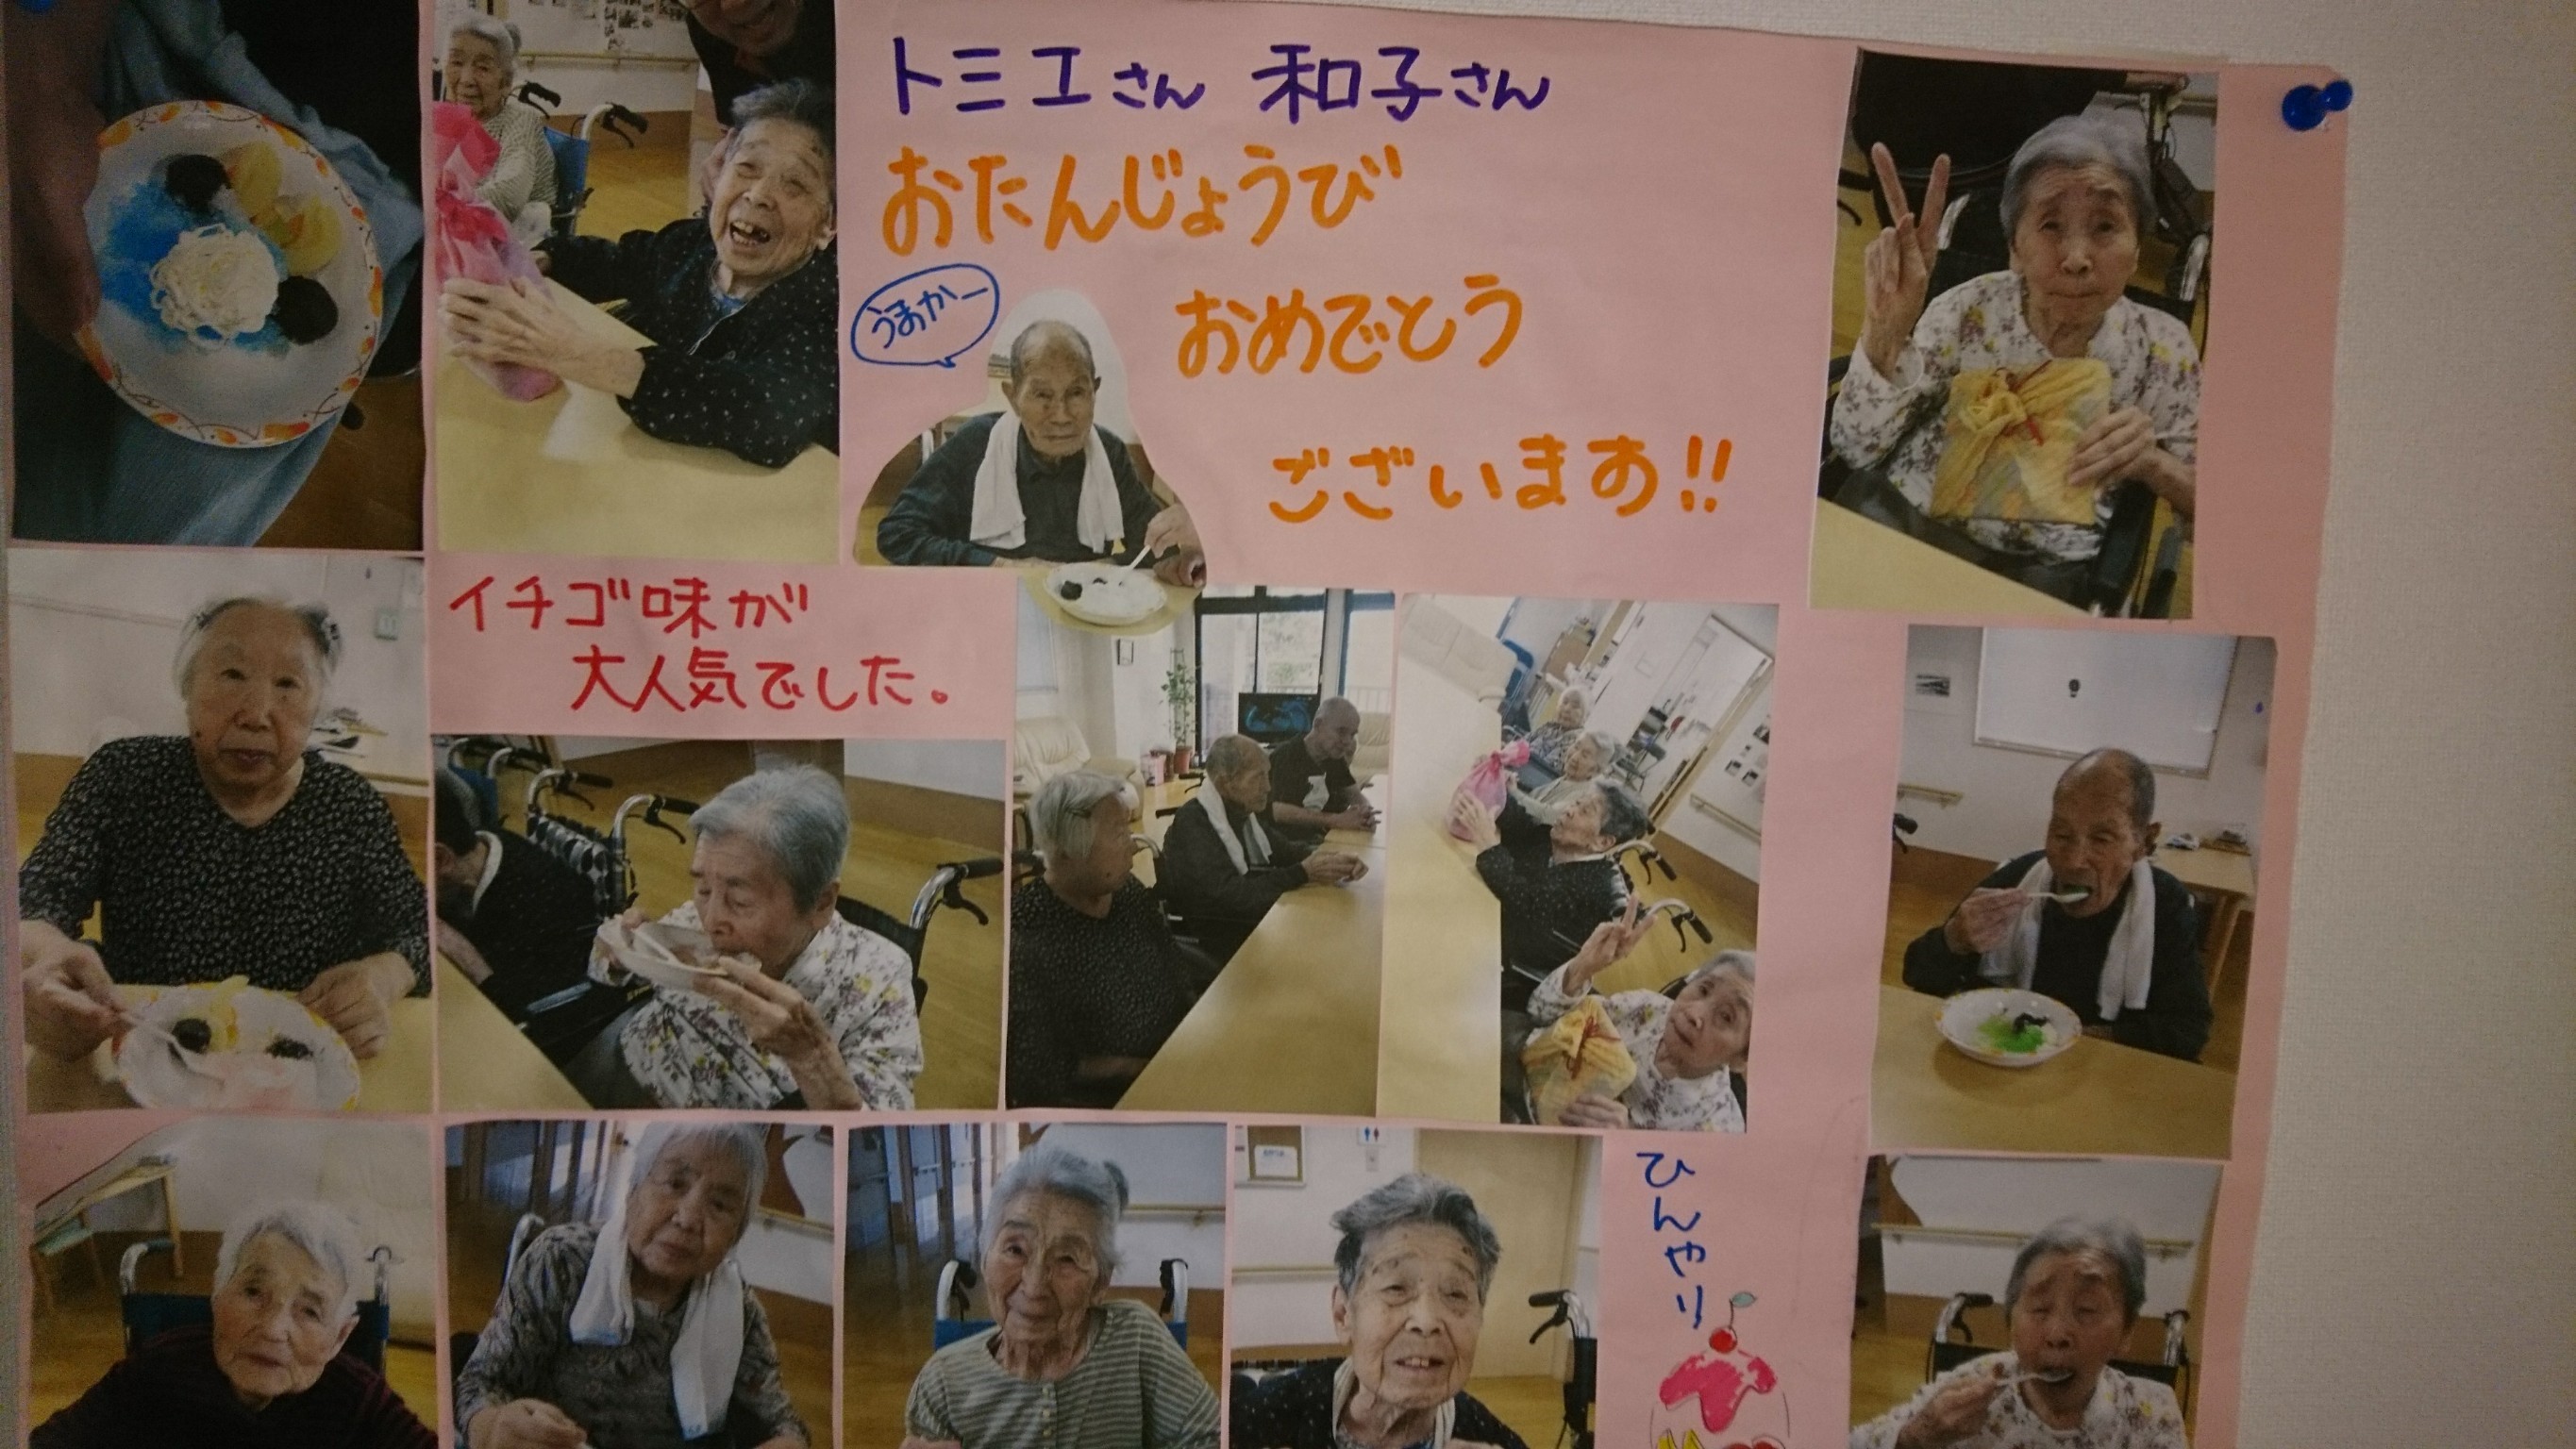 トミエさん 和子さん
おたんじょうび
うまかー
おめでとう
ございます!!
イチゴ味が
大人気でした。
ひんやり